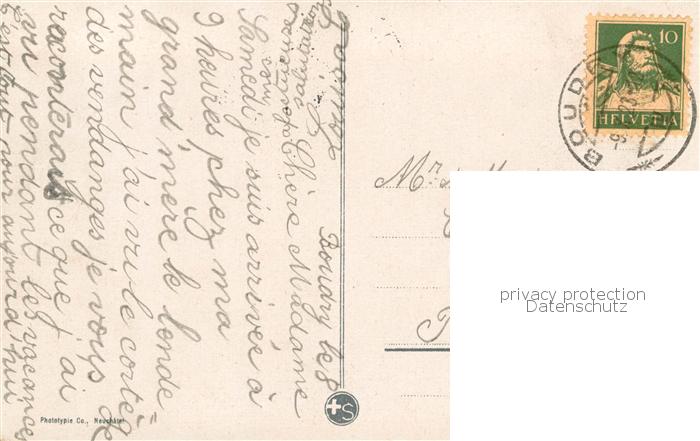 Boudry le 8
Chère Madame
Samedi je suis arrivée à
9 heures chez ma
grand'mère le lende=
main j'ai vu le cortè-
des vendanges je vous
raconterais ce que j'ai
vu pendant les vacances
C'est tout pour aujourd'hui
10
HELVETIA
BOUDRY
Mr.
privacy protection
Datenschutz
Phototypie Co., Neuchâtel
S